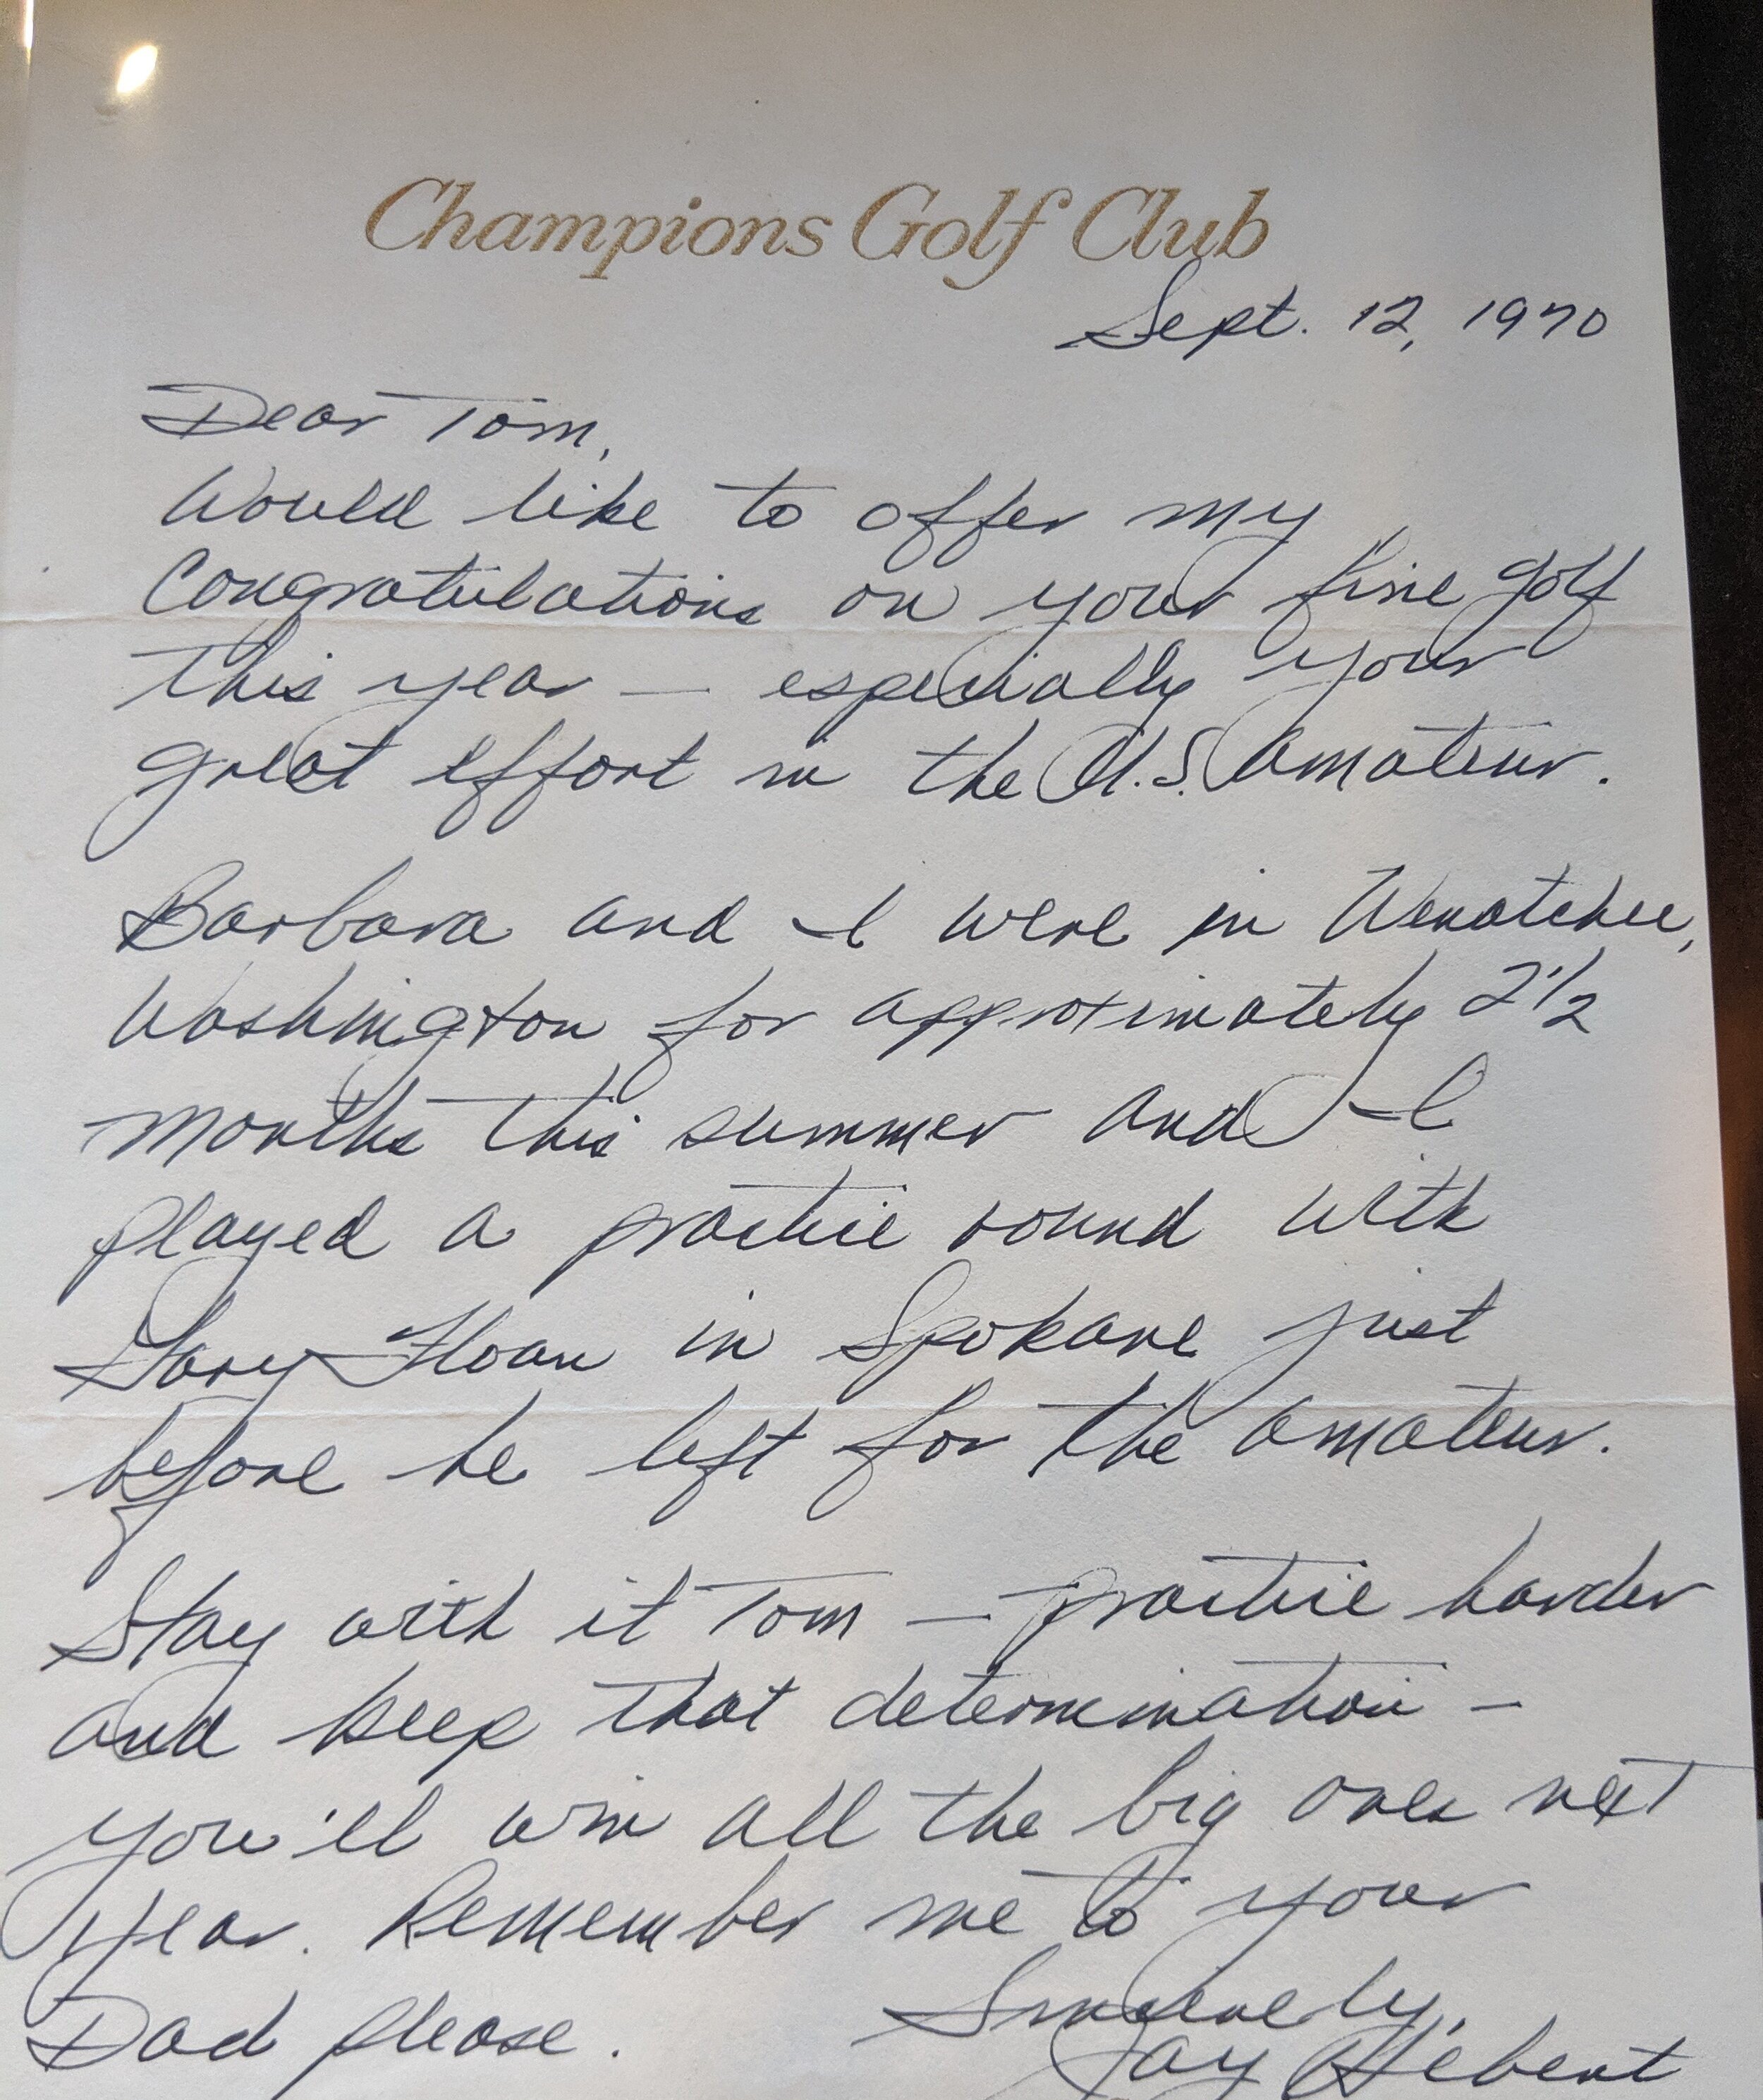 Champions Golf Club
Sept. 12, 1970
Dear Tom,
Would like to offer my
Congratulations on your fine golf
this year — especially your
great effort in the U.S. Amateur.
Barbara and I were in Wenatchee,
Washington for approximately 2 1/2
months this summer and I
played a practice round with
Gary Floan in Spokane just
before he left for the Amateur.
Stay with it Tom — practice harder
and keep that determination -
you'll win all the big ones next
year. Remember me to your
Dad please.
Sincerely,
Jay Hebert